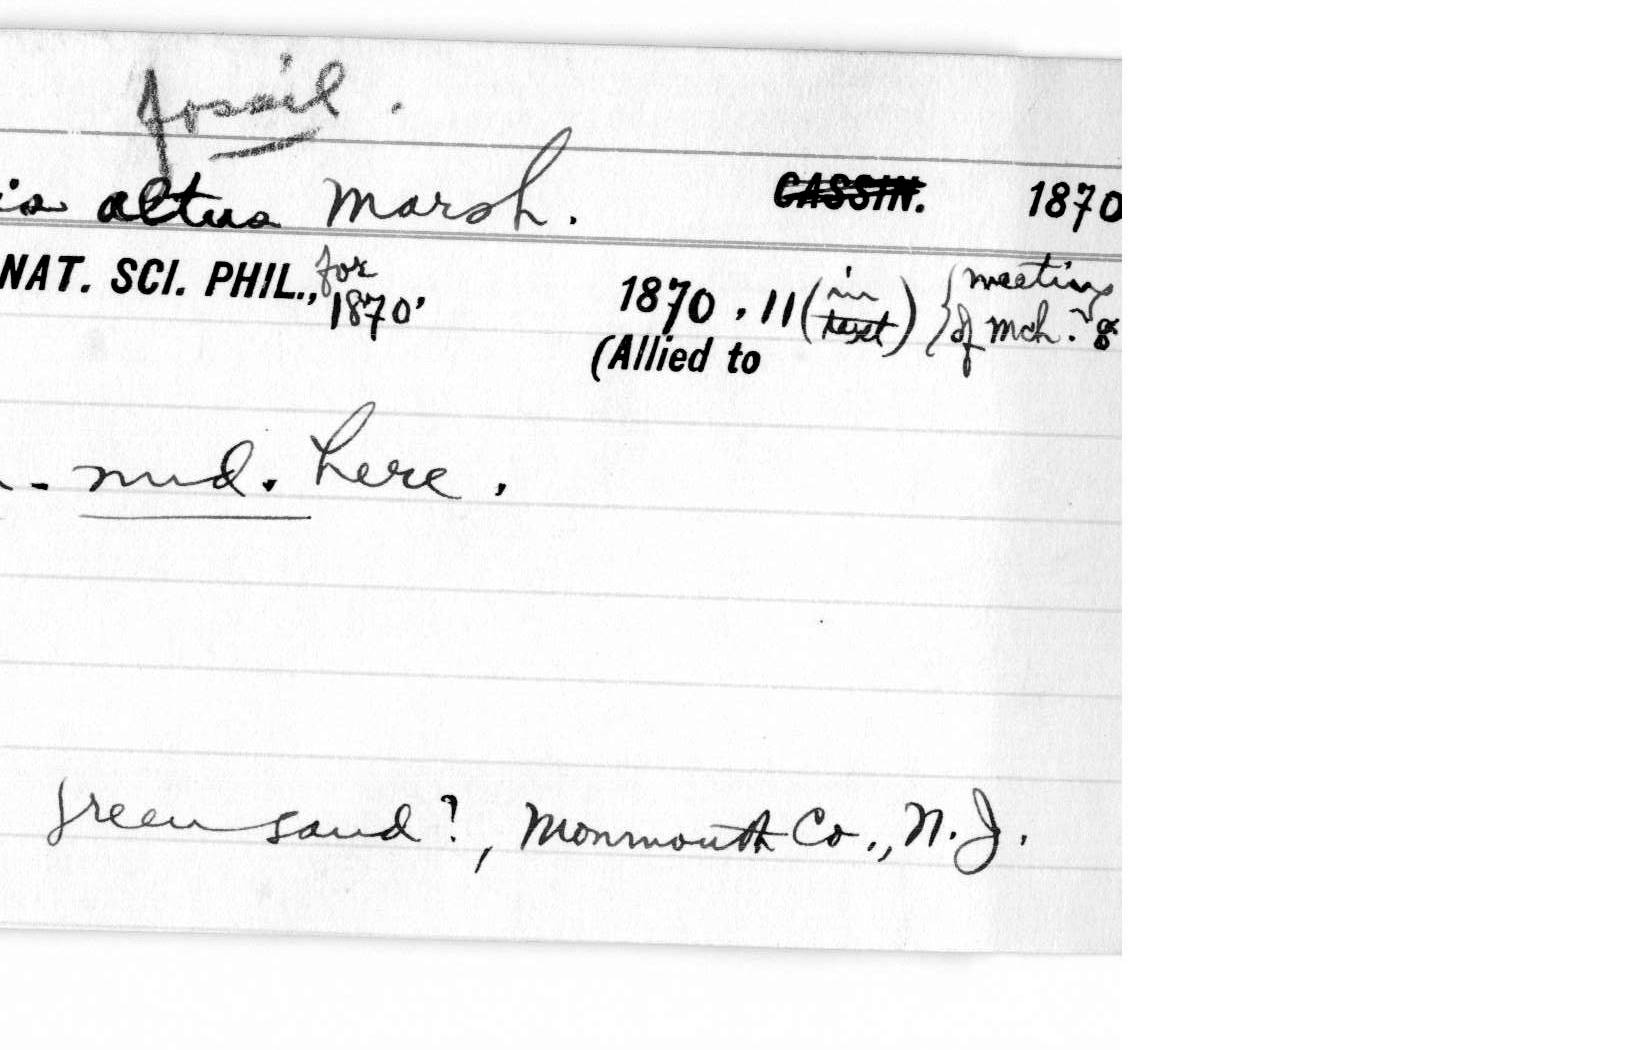 fossil.
is altus Marsh. CASSIN. 1870
NAT. SCI. PHIL., for 1870' 1870 . 11 (in text) {meeting of Mch. 8
(Allied to
. nud. here.
Greensand?, Monmouth Co., N.J.